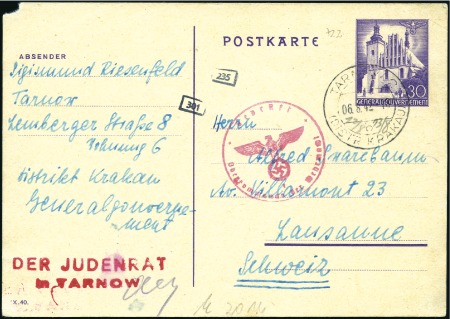 POSTKARTE
ABSENDER
Sigismund Riesenfeld
Tarnow
Lemberger Straße 8
Wohnung 6
Distrikt Krakau
Generalgouvernement
235
301
30
GENERALGOUVERNEMENT
TARNOW
06.8.42
KRAKAU
Oberkommando der Wehrmacht
Herrn
Alfred
Av. Villamont 23
Lausanne
Schweiz
DER JUDENRAT
in TARNOW
X.40.